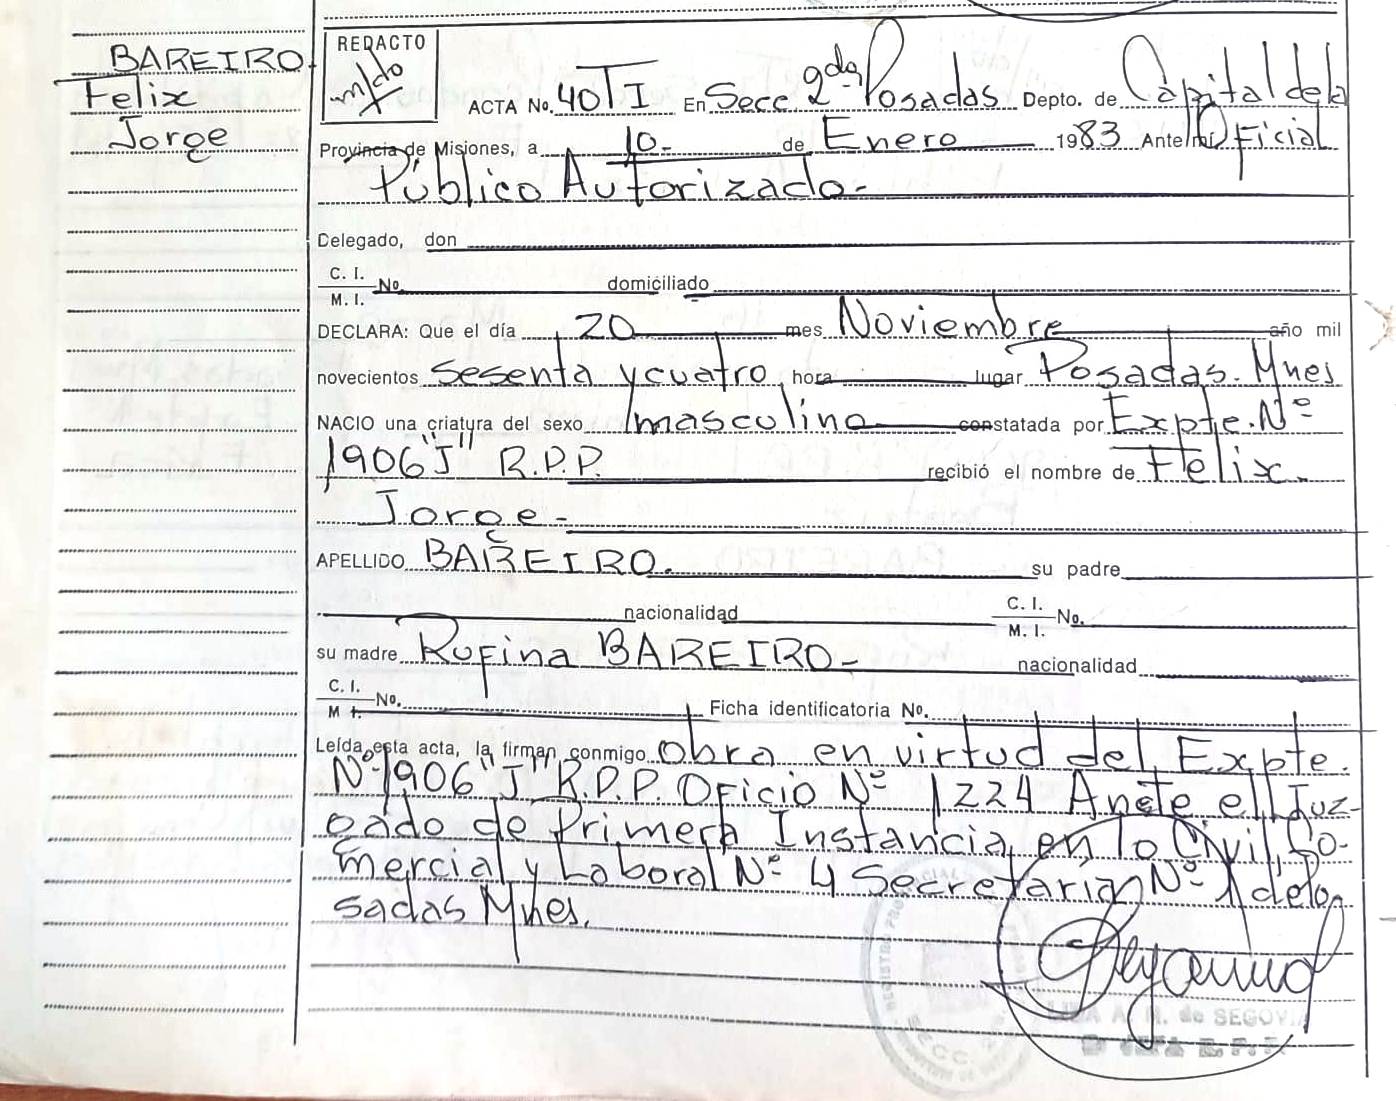 BAREIRO.
Felix
Jorge
REDACTO
m/do
ACTA No. 40 TI En Secc 2da Posadas Depto. de Capital de la
Provincia de Misiones, a 10- de Enero 1983 Ante mí Oficial
Público Autorizado-
Delegado, don
C. I.
M. I. No. domiciliado
DECLARA: Que el día 20 mes Noviembre año mil
novecientos sesenta y cuatro hora lugar Posadas. Mnes
NACIO una criatura del sexo masculino constatada por Expte. Nº
1906 "J" R.P.P. recibió el nombre de Felix
Jorge-
APELLIDO BAREIRO. su padre
nacionalidad C. I.
M. I. No.
su madre Rufina BAREIRO- nacionalidad
C. I.
M I. No. Ficha identificatoria No.
Leída esta acta, la firman conmigo obra en virtud del Expte.
Nº 1906 "J" R.P.P. Oficio Nº 1224 Anete el Juz-
gado de Primera Instancia en lo Civil, Co-
mercial y Laboral Nº 4 Secretaria Nº 1 de Po
sadas Mnes.
A. M. de SEGOVIA